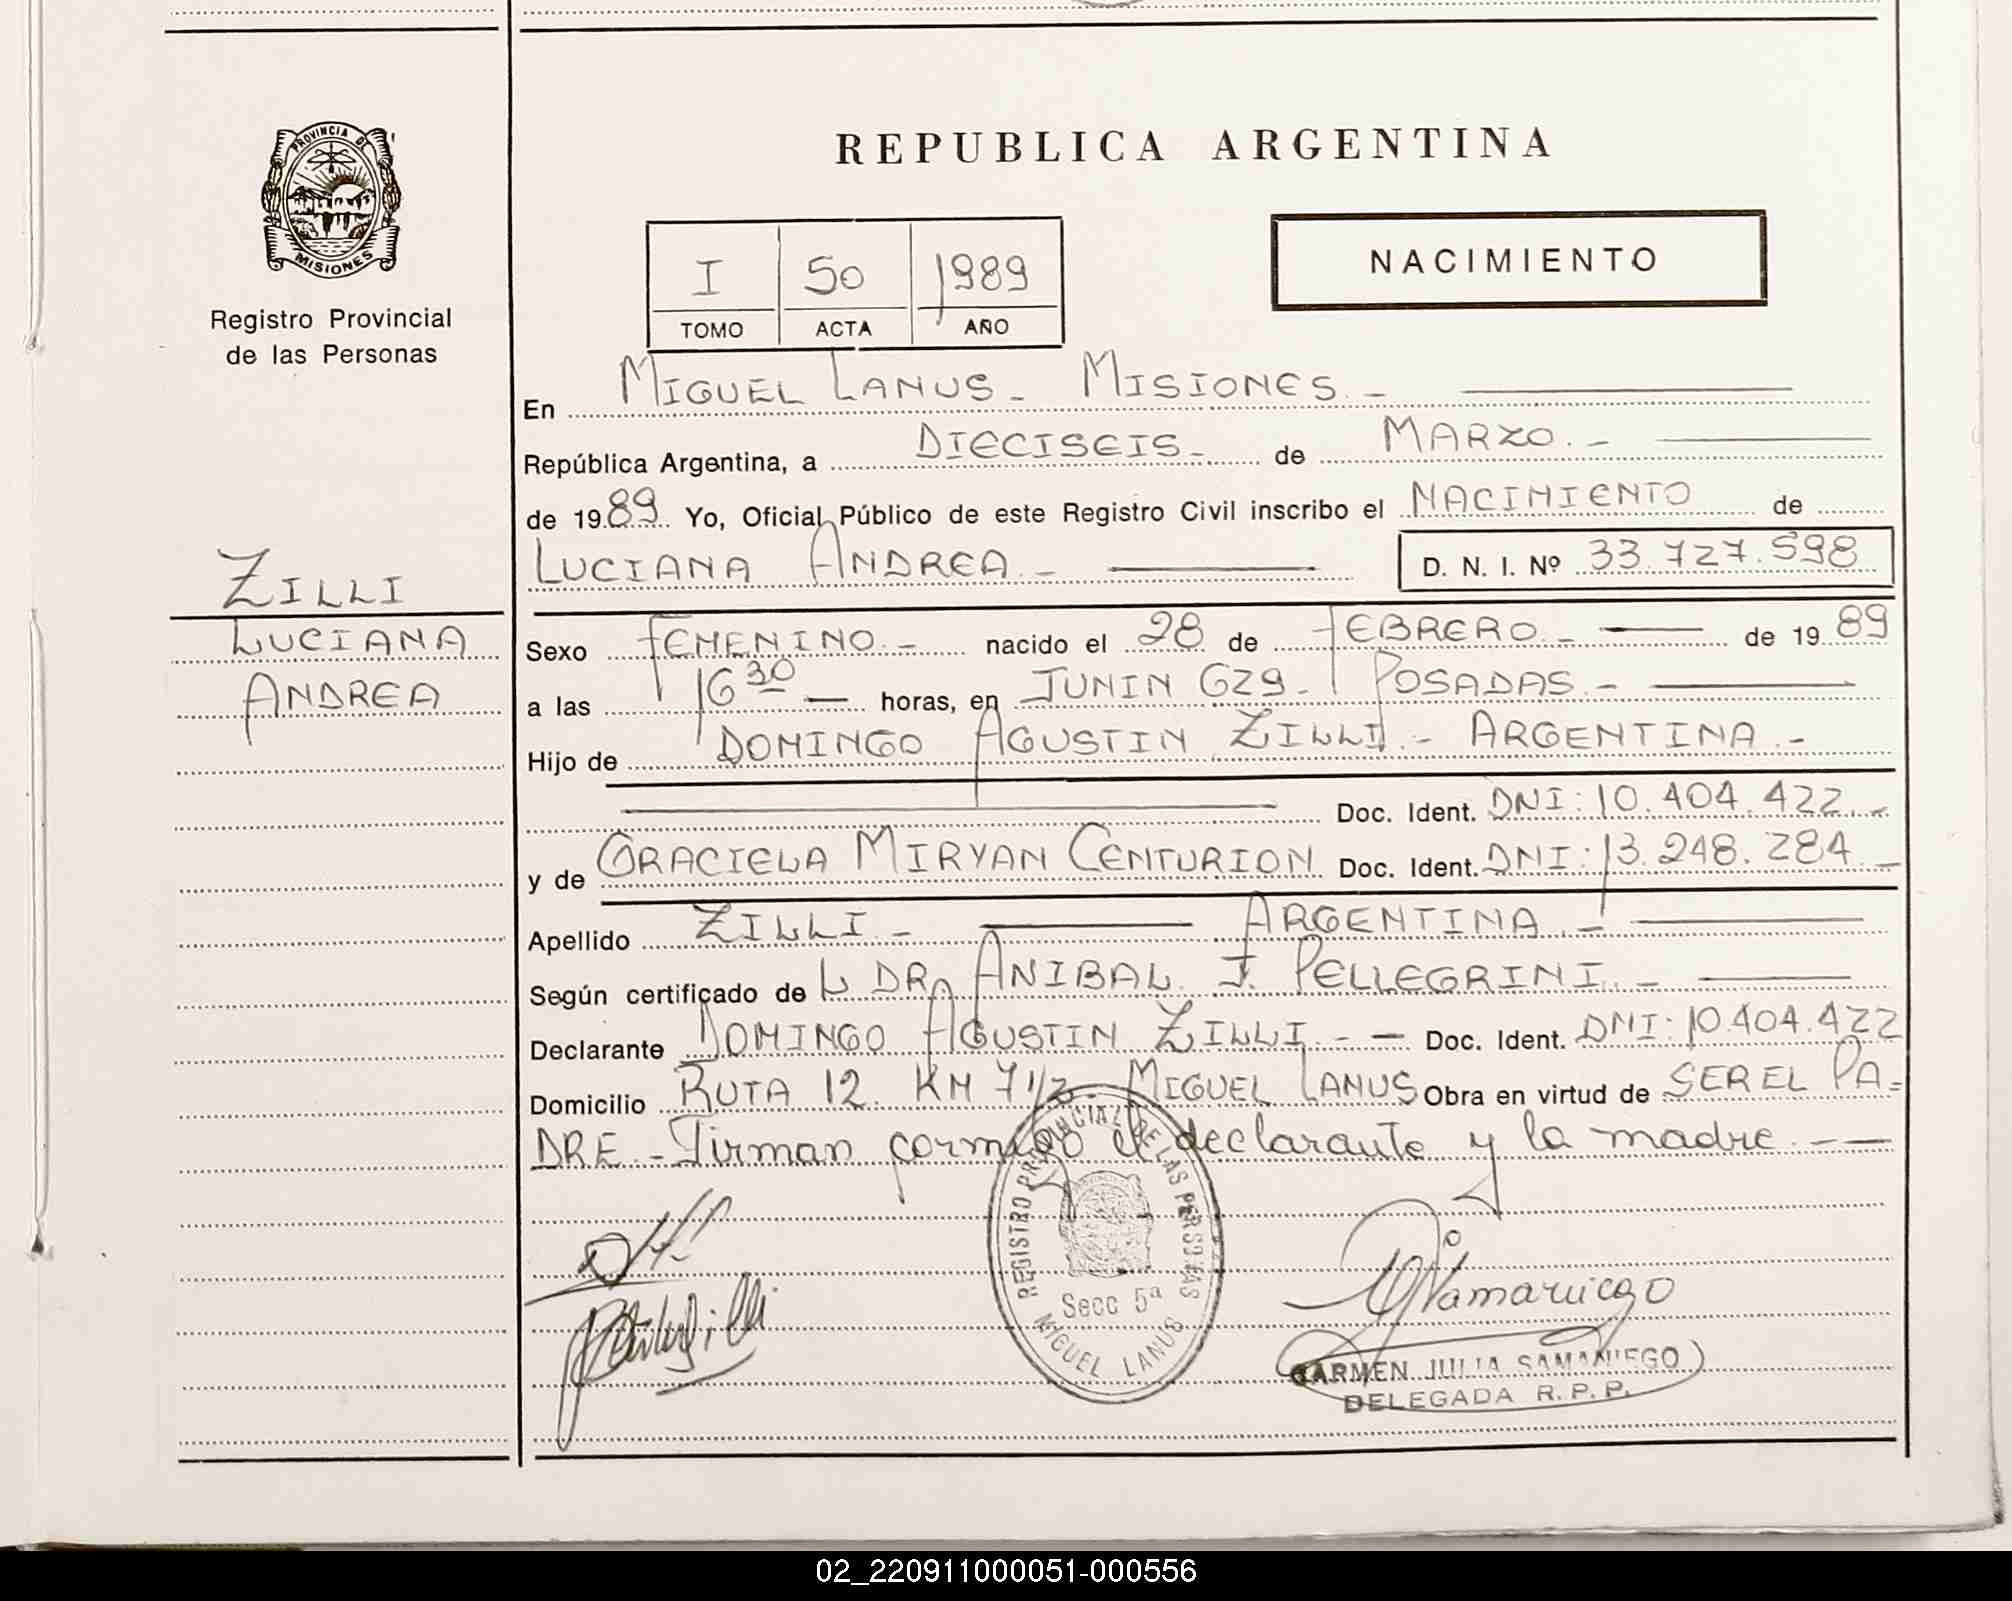 PROVINCIA DE
MISIONES
Registro Provincial
de las Personas
ZILLI
LUCIANA
ANDREA
REPUBLICA ARGENTINA
I 50 1989
TOMO ACTA AÑO
NACIMIENTO
En MIGUEL LANUS - MISIONES. -
República Argentina, a DIECISEIS - de MARZO. -
de 1989. Yo, Oficial Público de este Registro Civil inscribo el NACIMIENTO de
LUCIANA ANDREA. - D. N. I. Nº 33.727.598
Sexo FEMENINO. - nacido el 28 de FEBRERO. - de 1989
a las 16 30 — horas, en JUNIN 629 - POSADAS. -
Hijo de DOMINGO AGUSTIN ZILLI. - ARGENTINA. -
Doc. Ident. DNI: 10.404.422. -
y de GRACIELA MIRYAN CENTURION Doc. Ident. DNI: 13.248.284 -
Apellido ZILLI. - ARGENTINA. -
Según certificado de L DR. ANIBAL J. PELLEGRINI. -
Declarante DOMINGO AGUSTIN ZILLI. - — Doc. Ident. DNI: 10.404.422
Domicilio RUTA 12. KM 7 1/2 - MIGUEL LANUS Obra en virtud de SER EL PA=
DRE. - Firman conmigo el declarante y la madre. -
REGISTRO PROVINCIAL DE LAS PERSONAS
Secc 5ª
MIGUEL LANUS
CARMEN JULIA SAMANIEGO
DELEGADA R.P.P.
02_220911000051-000556